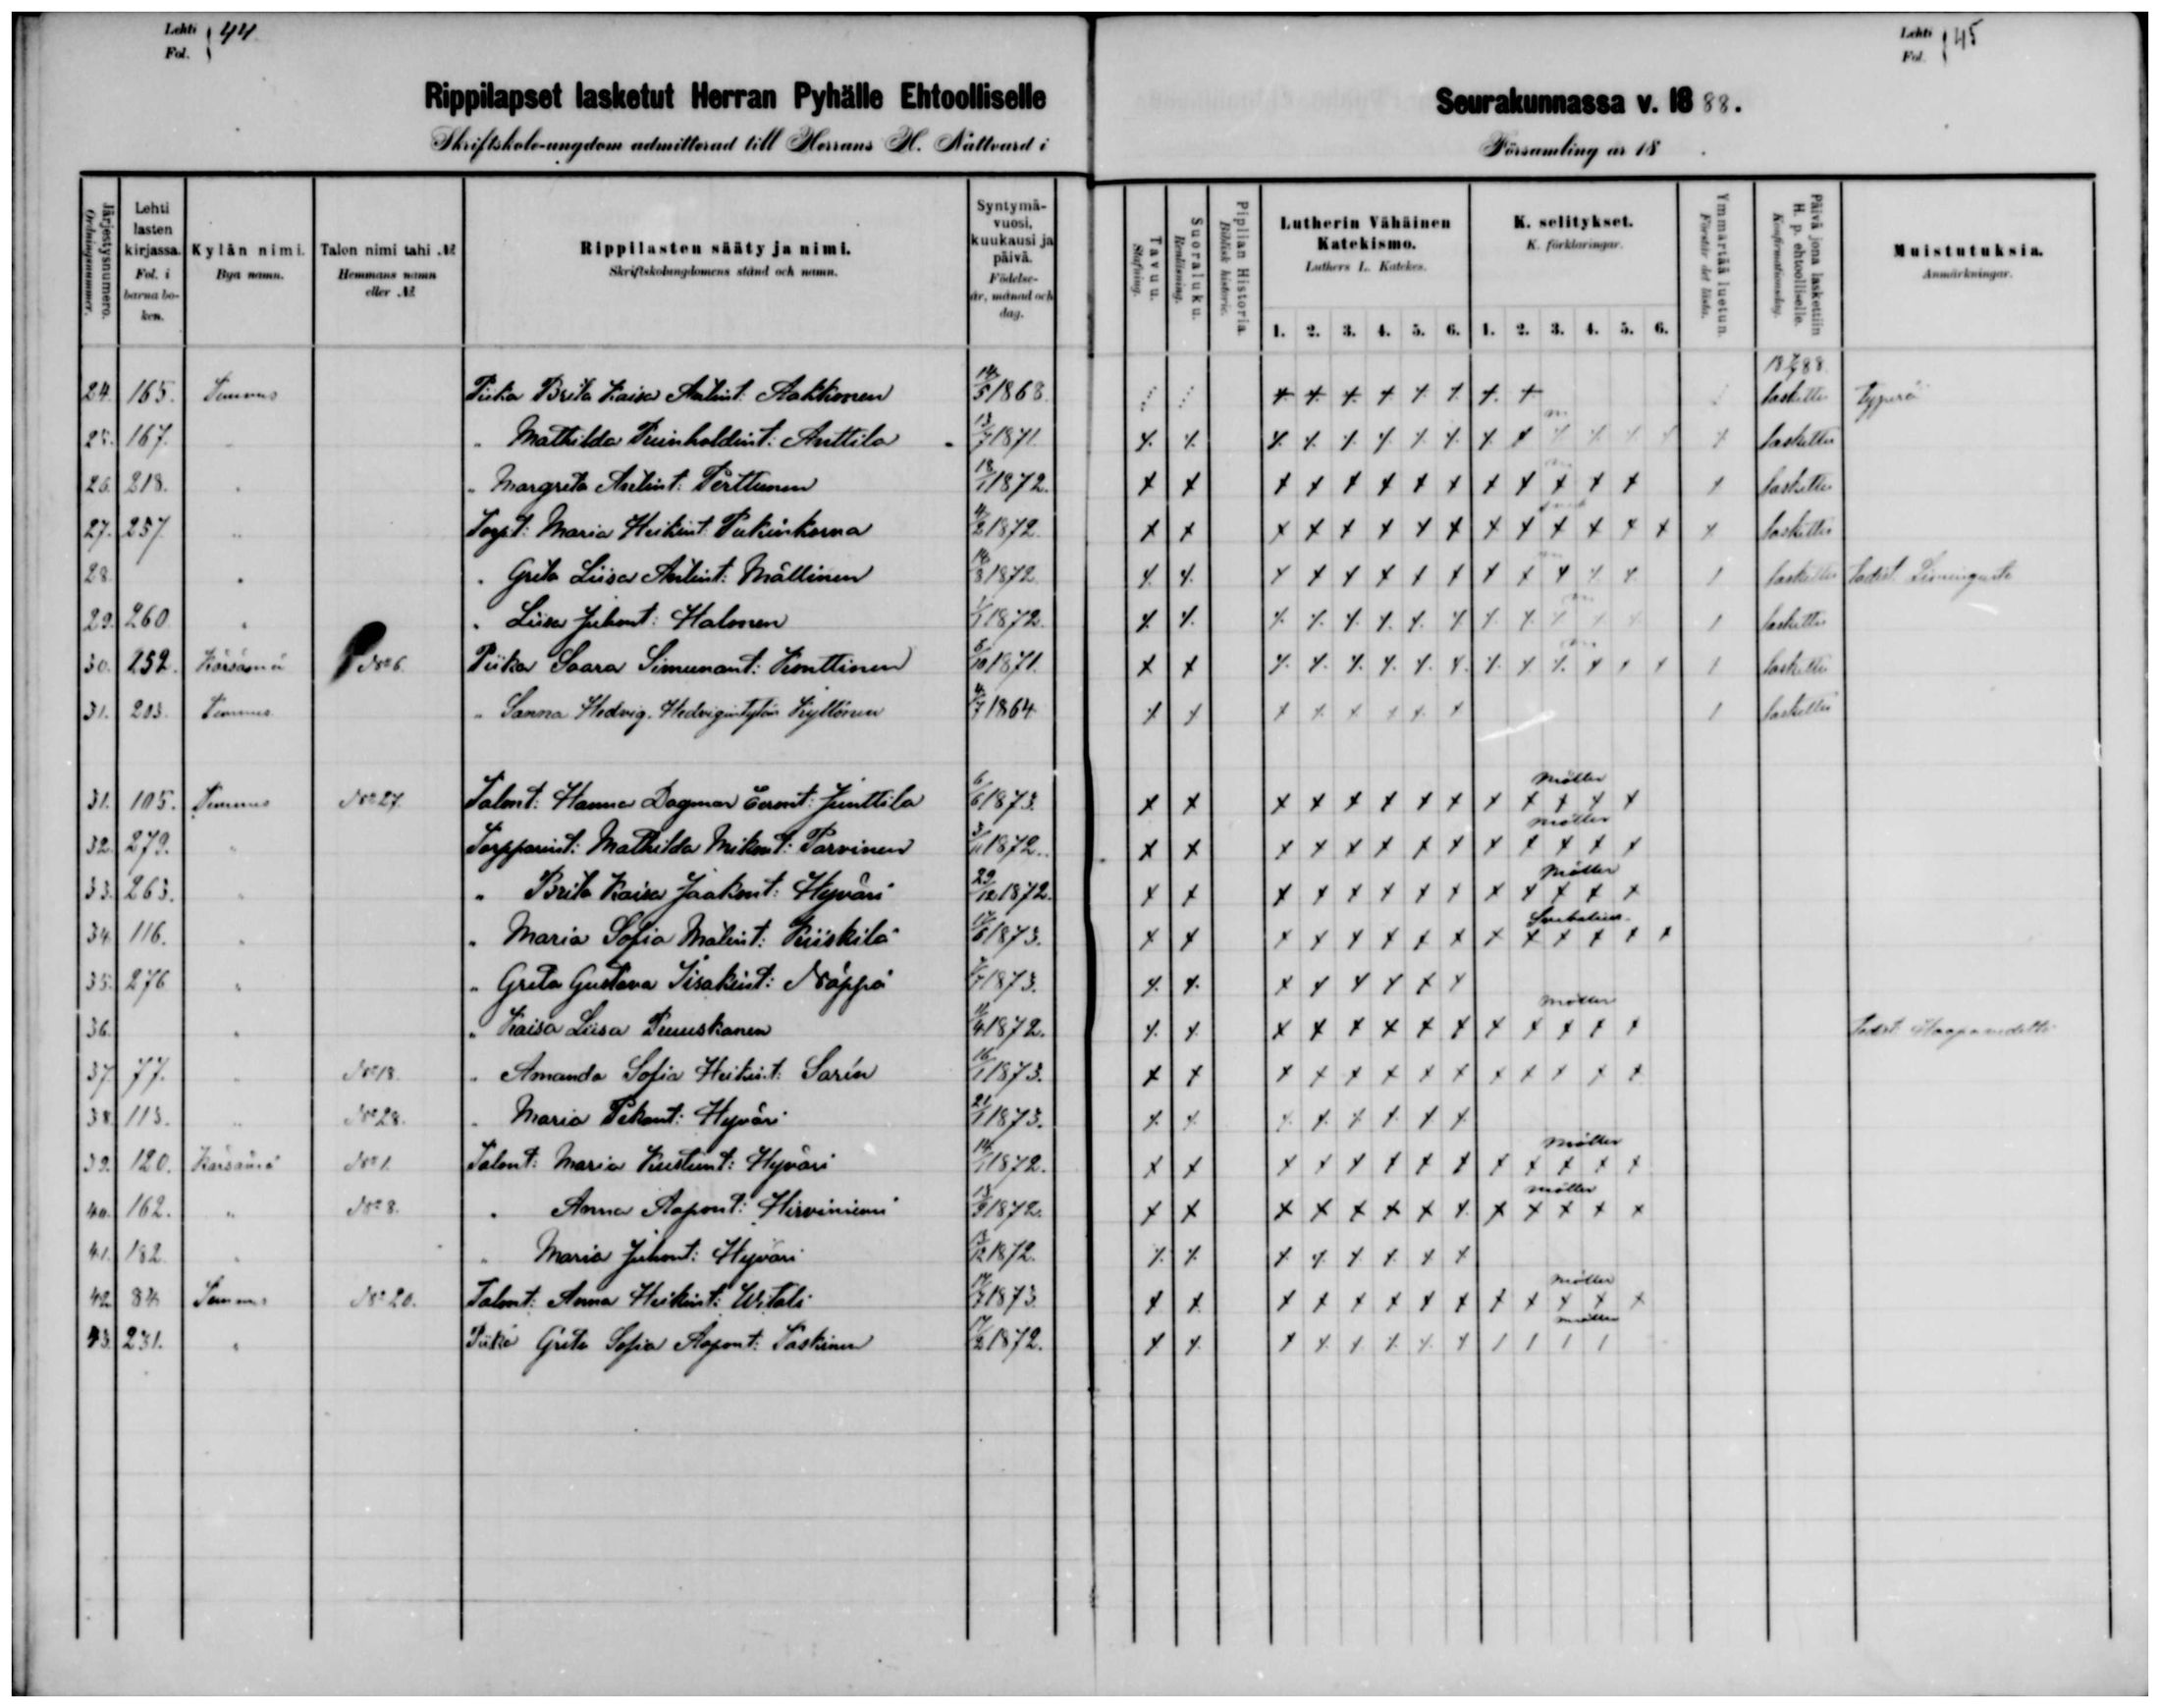 Lehti 44 Fol.
Rippilapset lasketut Herran Pyhälle Ehtoolliselle
Skriftskole-ungdom admitterad till Herrans H. Nattvard i
Järjestysnumero. Ordningsnummer.
Lehti lasten kirjassa. Fol. i barna boken.
Kylän nimi. Bya namn.
Talon nimi tahi № Hemmans namn eller №
Rippilasten sääty ja nimi. Skriftskolungdomens stånd och namn.
Syntymävuosi, kuukausi ja päivä. Födelseår, månad och dag.
24. 165. Temmes Piika Brita Kaisa Antint: Aakkonen 14/5 1868.
25. 167. " Mathilda Reinholdint: Anttila 13/7 1871.
26. 218. " " Margreta Antint: Perttunen 18/1 1872.
27. 257. " Torpt: Maria Heikint: 4/2 1872.
28. " " Greta Liisa Antint: Mällinen 14/3 1872.
29. 260. " " Liisa Juhont: Halonen 1872.
30. 252. Kärsämä № 6. Piika Saara Simunant: Konttinen 5/10 1871.
31. 203. Temmes " Sanna Hedvig. Kyllönen 4/7 1864.
31. 105. Temmes № 27. Talont: Hanna Dagmar Eeront: Junttila 6/6 1873.
32. 279. " Torpparint: Mathilda Mikont: Parvinen 3/11 1872.
33. 263. " " Brita Kaisa Jaakont: Hyväri 29/12 1872.
34. 116. " " Maria Sofia Matint: Kiiskilä 17/6 1873.
35. 276 " " Greta Gustava Iisakint: Näppä 1873.
36. " " Kaisa Liisa Puuskanen 11/4 1872.
37. 77. " № 18. " Amanda Sofia Heikint: Sarén 16/1 1873.
38. 113. " № 28. " Maria Pekant: Hyväri 21/1 1873.
39. 120. Kärsämä № 1. Talont: Maria Kustint: Hyväri 14/1 1872.
40. 162. " № 8. " Anna Aapont: Hirviniemi 13/9 1872.
41. 182. " " Maria Juhont: Hyväri 13/12 1872.
42. 84. Temmes № 20. Talont: Anna Heikint: Witali 1873.
43. 231. " Piika Greta Sofia Aapont: Paskinen 17/2 1872.
Lehti 45 Fol.
Seurakunnassa v. 1888.
Församling år 18 .
Tavuu. Stafning.
Suoraluku. Renläsning.
Piplian Historia. Biblisk historie.
Lutherin Vähäinen Katekismo. Luthers L. Katekes.
1. 2. 3. 4. 5. 6.
K. selitykset. K. förklaringar.
1. 2. 3. 4. 5. 6.
Ymmärtää luetun. Förstår det lästa.
Päivä jona laskettiin H. p. ehtoolliselle. Konfirmationsdag.
Muistutuksia. Anmärkningar.
laskettu typerä
laskettu
laskettu
laskettu
laskettu todist. Limingasta
laskettu
laskettu
laskettu
Möller
Möller
Möller
Möller
Todist. Haapavedeltä
Möller
Möller
Möller
Möller